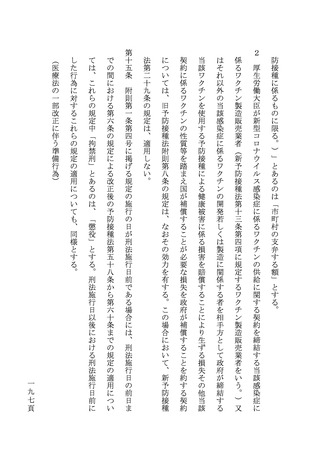 防接種に係るものに限る。）」とあるのは「市町村の支弁する額」とする。
２　厚生労働大臣が新型コロナウイルス感染症に係るワクチンの供給に関する契約を締結する当該感染症に
係るワクチン製造販売業者（新予防接種法第十三条第四項に規定するワクチン製造販売業者をいう。）又
はそれ以外の当該感染症に係るワクチンの開発若しくは製造に関係する者を相手方として政府が締結する
当該ワクチンを使用する予防接種による健康被害に係る損害を賠償することにより生ずる損失その他当該
契約に係るワクチンの性質等を踏まえ国が補償することが必要な損失を政府が補償することを約する契約
については、旧予防接種法附則第八条の規定は、なおその効力を有する。この場合において、新予防接種
法第二十九条の規定は、適用しない。
第十五条　附則第一条第四号に掲げる規定の施行の日が刑法施行日前である場合には、刑法施行日の前日ま
での間における第六条の規定による改正後の予防接種法第五十八条から第六十条までの規定の適用につい
ては、これらの規定中「拘禁刑」とあるのは、「懲役」とする。刑法施行日以後における刑法施行日前に
した行為に対するこれらの規定の適用についても、同様とする。
（医療法の一部改正に伴う準備行為）
一九七頁